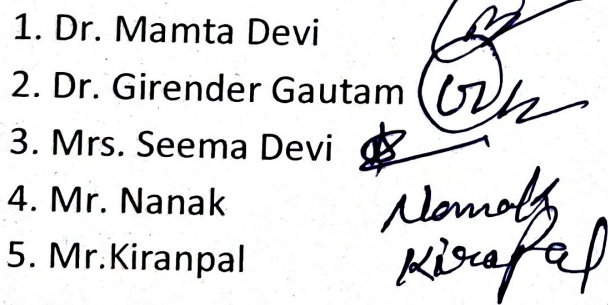 1. Dr. Mamta Devi
2. Dr. Girender Gautam
3. Mrs. Seema Devi
4. Mr. Nanak Nanak
5. Mr.Kiranpal Kirapal